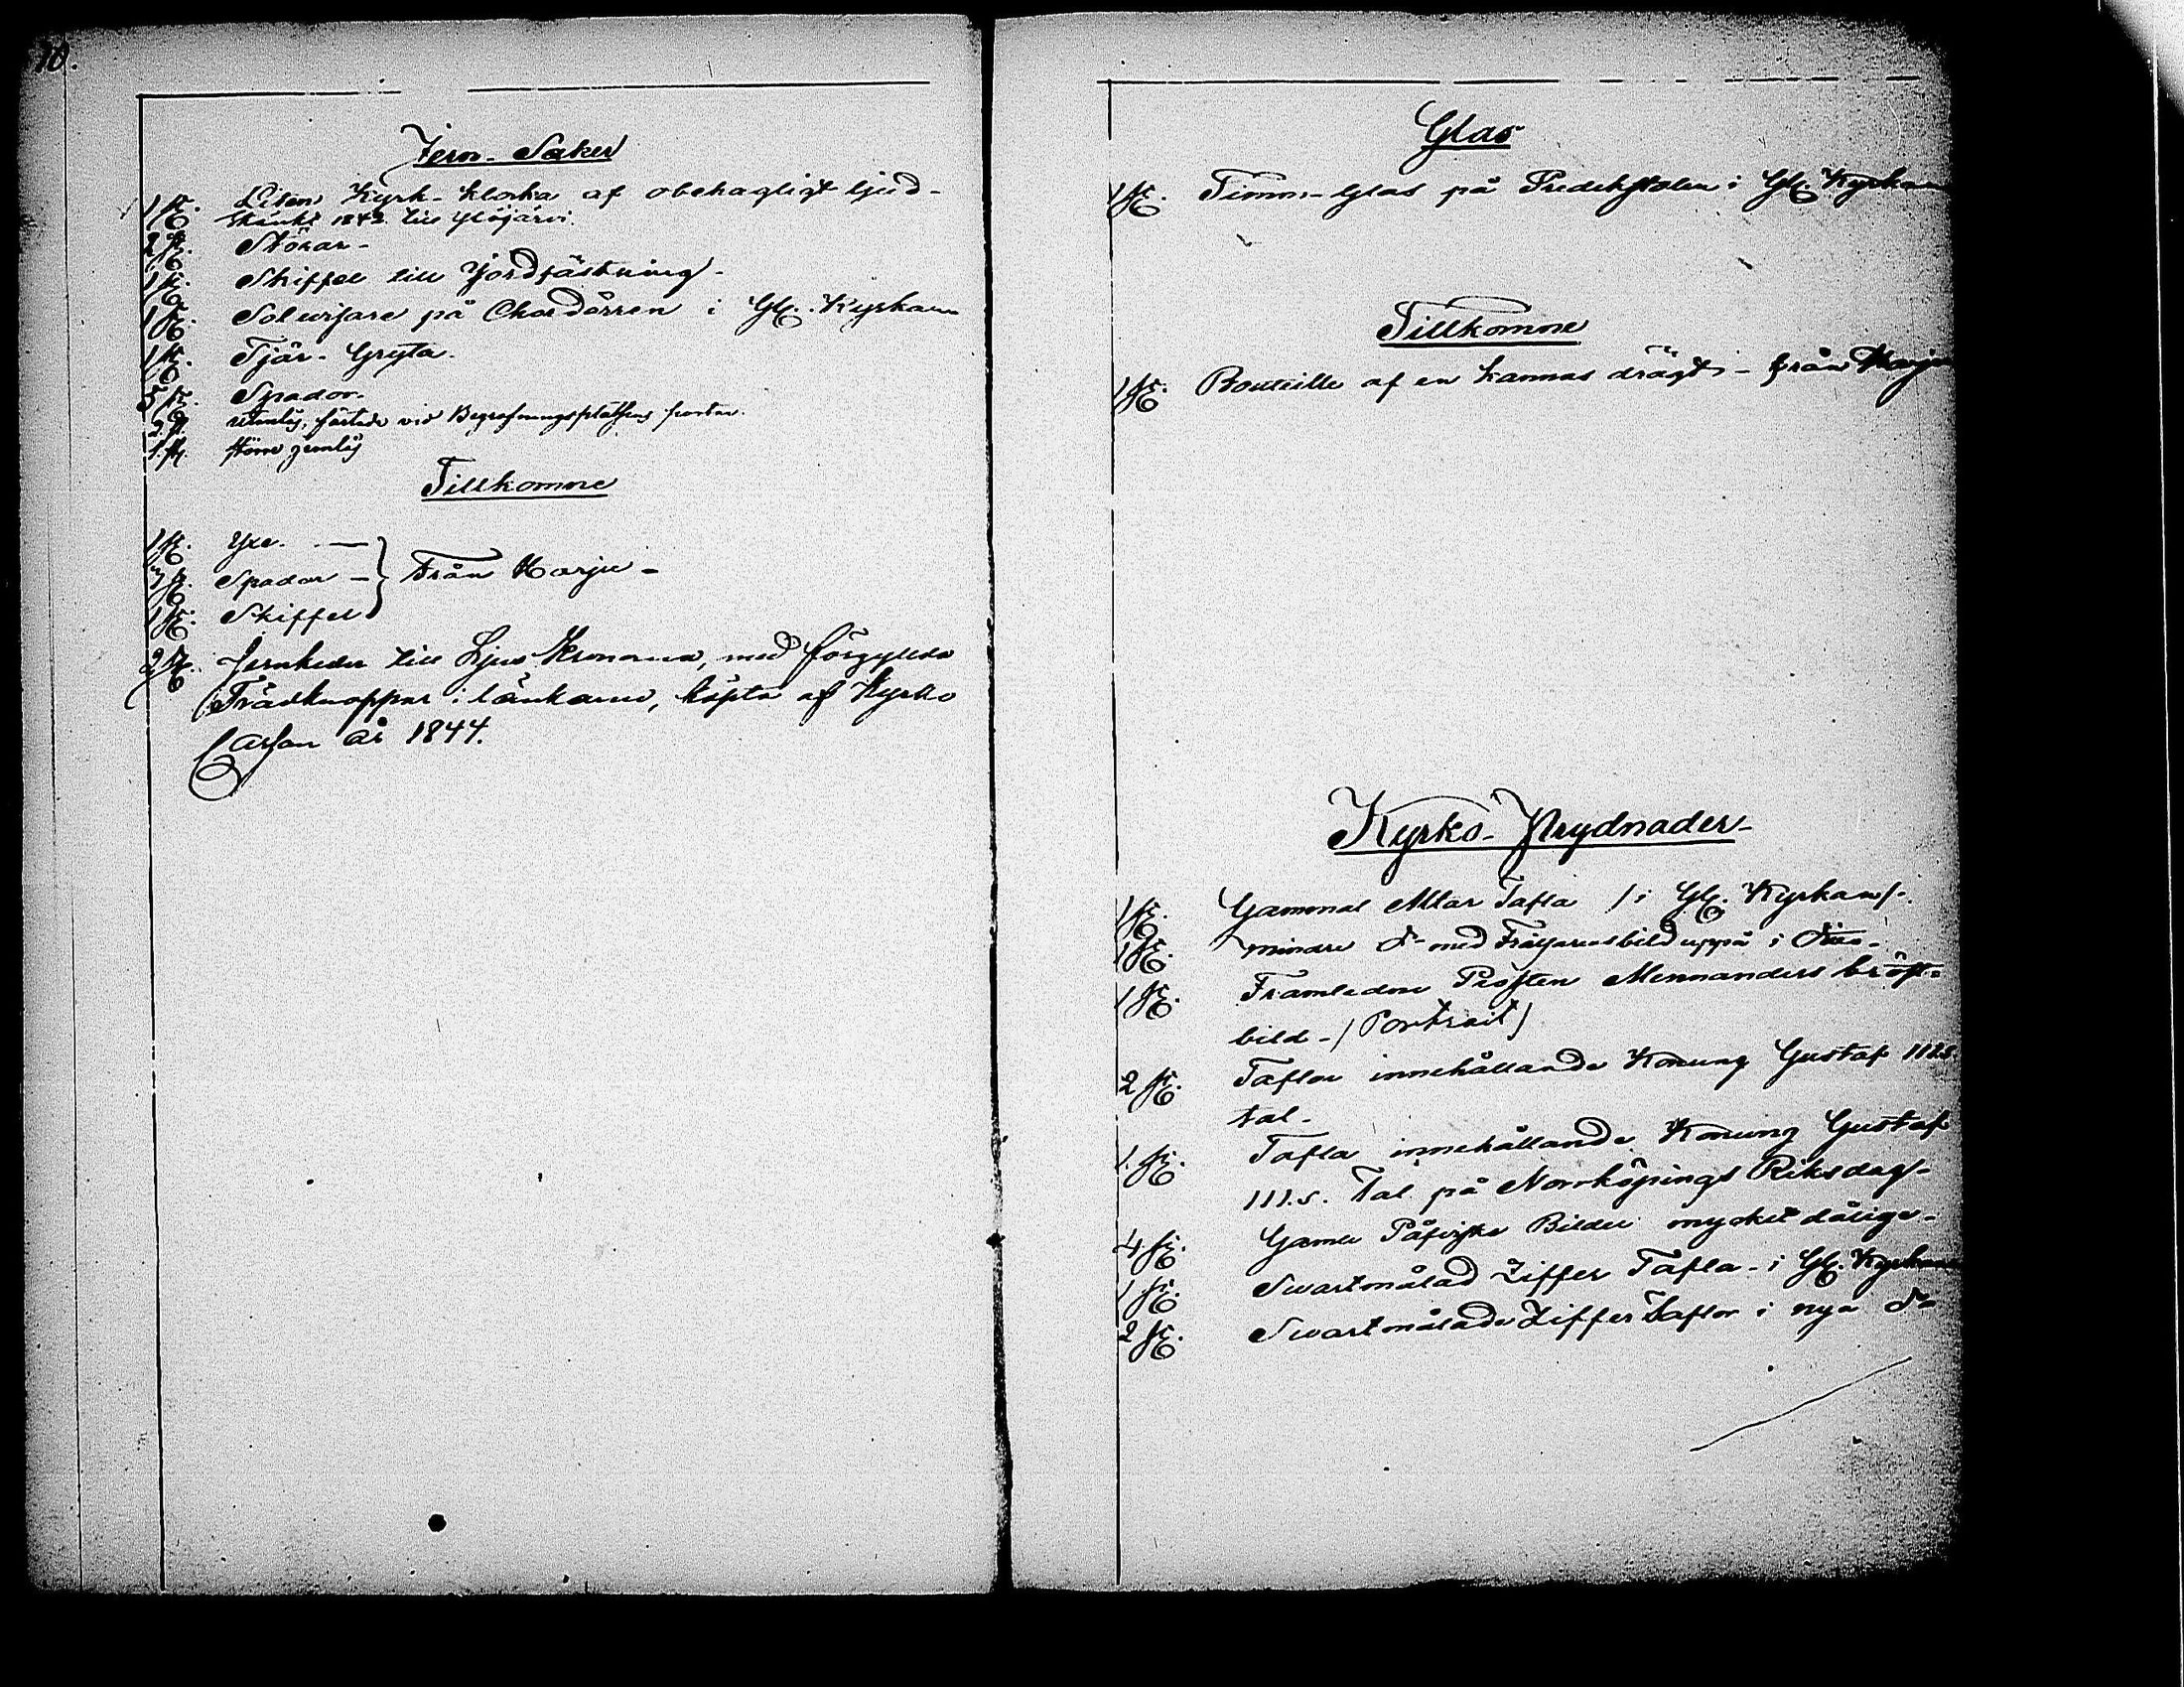 10.
Jern-Saker
1 st. Liten Kyrk-klocka af obehagligt ljud-
Skänkt 1842 till Ylöjärvi.
2 st. Störar-
1 st. Skiffel till Jordfästning-
1 st. Solwisare på Chordörren i Gl. Kyrkan
1 st. Tjär-Gryta-
5 st. Spador-
2 st. fästade vid Begrafningsplatsens portar.
1 st. större
Tillkomne
1 st. Yxe. —
3 st. Spador — från Harju-
1 st. Skiffel
2 st. Jernkedor till Ljus Kronorna, med förgyllda
Trädknoppar i länkarne, köpta af Kyrko
Cassan år 1844.
Glas
1 st. Timm-Glas på Predikstolen i Gl. Kyrkan
Tillkomne
1 st. Bouteille af en kannas drägt - från Harju
Kyrko-Prydnader-
1 st. Gammal Altar Tafla /i Gl. Kyrkan/-
1 st. mindre do med Frälsarens bild uppå i dito-
1 st. Framledne Prosten Mennanders bröst-
bild-/Portrait/
2 st. Taflor innehållande Konung Gustaf III.s
tal-
1. st. Tafla innehållande Konung Gustaf
III.s. Tal på Norrköpings Riksdag-
4 st. Gamla Påfviska Bilder mycket dåliga-
1 st. Swartmålad Ziffer Tafla - i Gl. Kyrkan
2 st. Swartmålade Ziffer Taflor i nya do